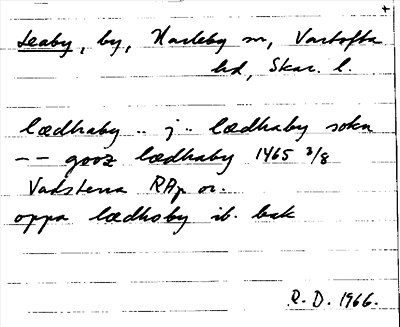 +
Leaby, by, Karleby sn, Vartofta
hd, Skar. l.
lædhaby .. j .. lædhaby sokn
-- gooz lædhaby 1465 2/8
Vadstena RAp or.
oppa lædhoby ib. bak
R. D. 1966.